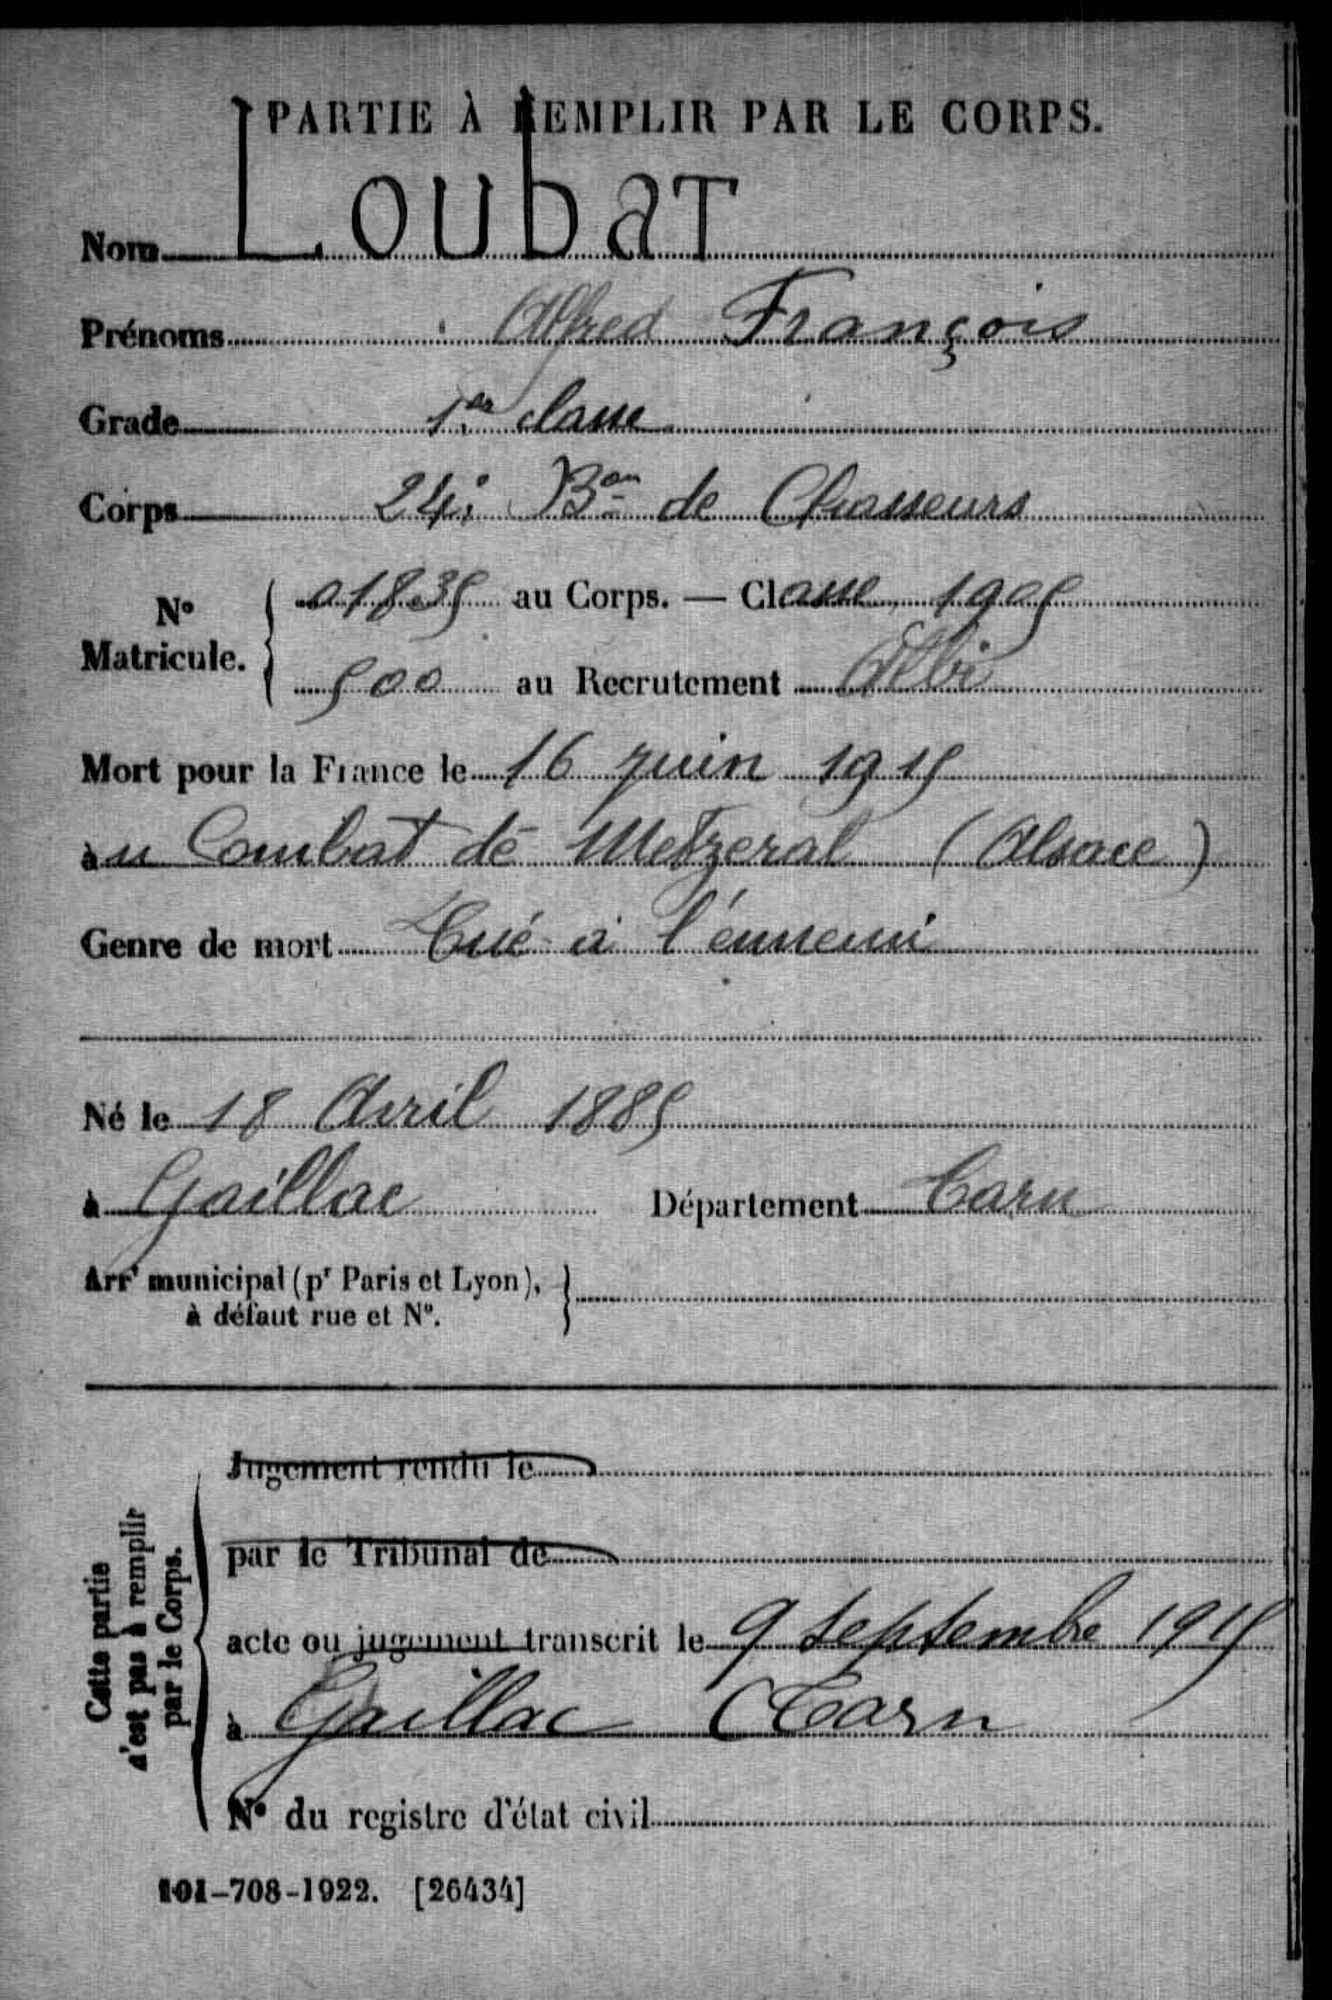 PARTIE À REMPLIR PAR LE CORPS.
Nom Loubat
Prénoms Alfred François
Grade 1er classe
Corps 24e Bon de Chasseurs
No Matricule. { 01835 au Corps. — Classe 1905
500 au Recrutement Albi
Mort pour la France le 16 juin 1915
au Combat de Metzeral (Alsace)
Genre de mort Tué à l'ennemi
Né le 18 Avril 1885
à Gaillac Département Tarn
Arrt municipal (pr Paris et Lyon), }
à défaut rue et No.
Cette partie n'est pas à remplir par le Corps.
Jugement rendu le
par le Tribunal de
acte ou jugement transcrit le 9 septembre 1915
à Gaillac (Tarn
No du registre d'état civil
101-708-1922. [26434]